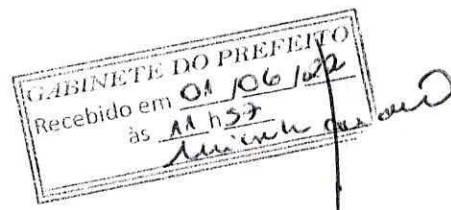 GABINETE DO PREFEITO
Recebido em 01/06/22
às 11 h 57